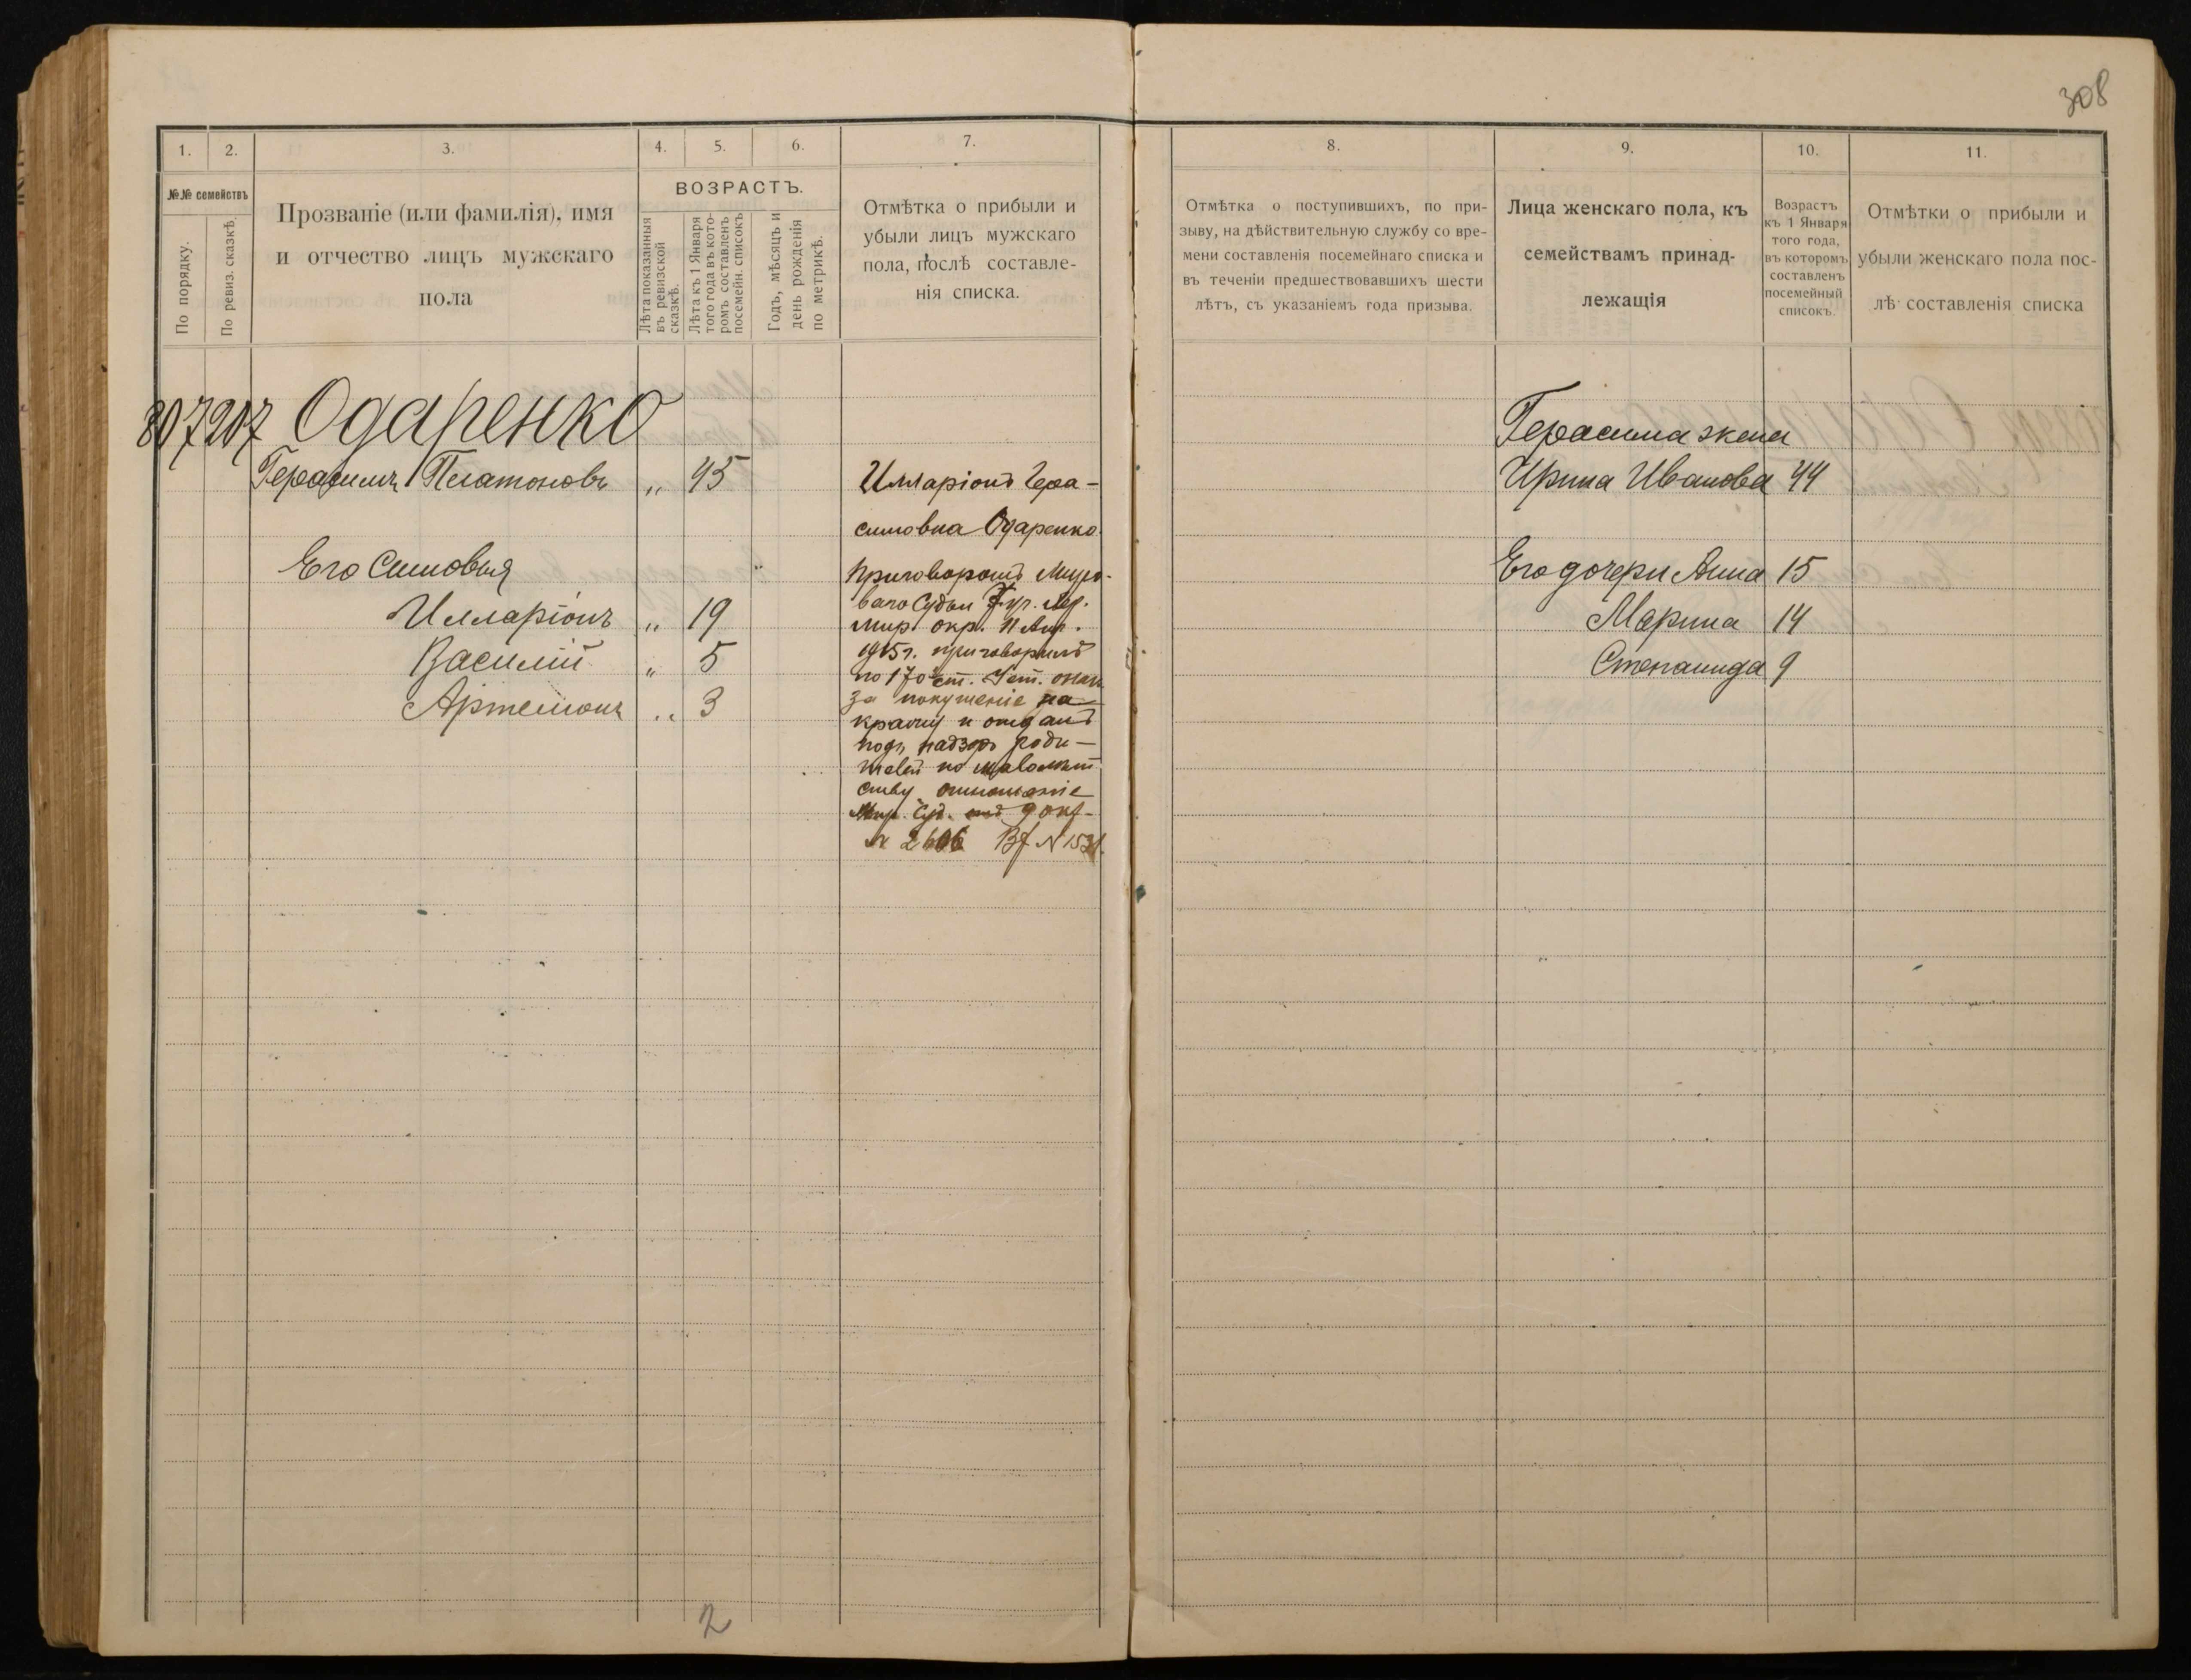 308
1. 2. 3. 4. 5. 6. 7. 8. 9. 10. 11.
№№ семействъ
По порядку.
По ревиз. сказкѣ.
Прозваніе (или фамилія), имя
и отчество лицъ мужскаго
пола
ВОЗРАСТЪ.
Лѣта показанныя
въ ревизской
сказкѣ.
Лѣта къ 1 Января
того года въ кото-
ромъ составленъ
посемейн. списокъ
Годъ, мѣсяцъ и
день рожденія
по метрикѣ.
Отмѣтка о прибыли и
убыли лицъ мужскаго
пола, послѣ составле-
нія списка.
Отмѣтка о поступившихъ, по при-
зыву, на дѣйствительную службу со вре-
мени составленія посемейнаго списка и
въ теченіи предшествовавшихъ шести
лѣтъ, съ указаніемъ года призыва.
Лица женскаго пола, къ
семействамъ принад-
лежащія
Возрастъ
къ 1 Января
того года,
въ которомъ
составленъ
посемейный
списокъ.
Отмѣтки о прибыли и
убыли женскаго пола пос-
лѣ составленія списка
207 Одаренко
Герасимъ Платоновъ „ 45
Его Сыновья
Илларіонъ „ 19
Василій „ 5
Артемонъ „ 3
Илларіонъ Гера-
симовна Одаренко
Приговоромъ Миро-
ваго Судьи
мир. окр. 11
1915 г. приговоренъ
по 170 ст. Уст. о нак.
за покушеніе на
кражу и отданъ
подъ надзоръ роди-
телей по малолѣт
ству отношеніе
Мир. Суд. 9 окт.
№ 2606 Вх №
Герасима жена
Ирина Иванова 44
Его дочери Анна 15
Марина 14
Степанида 9
2